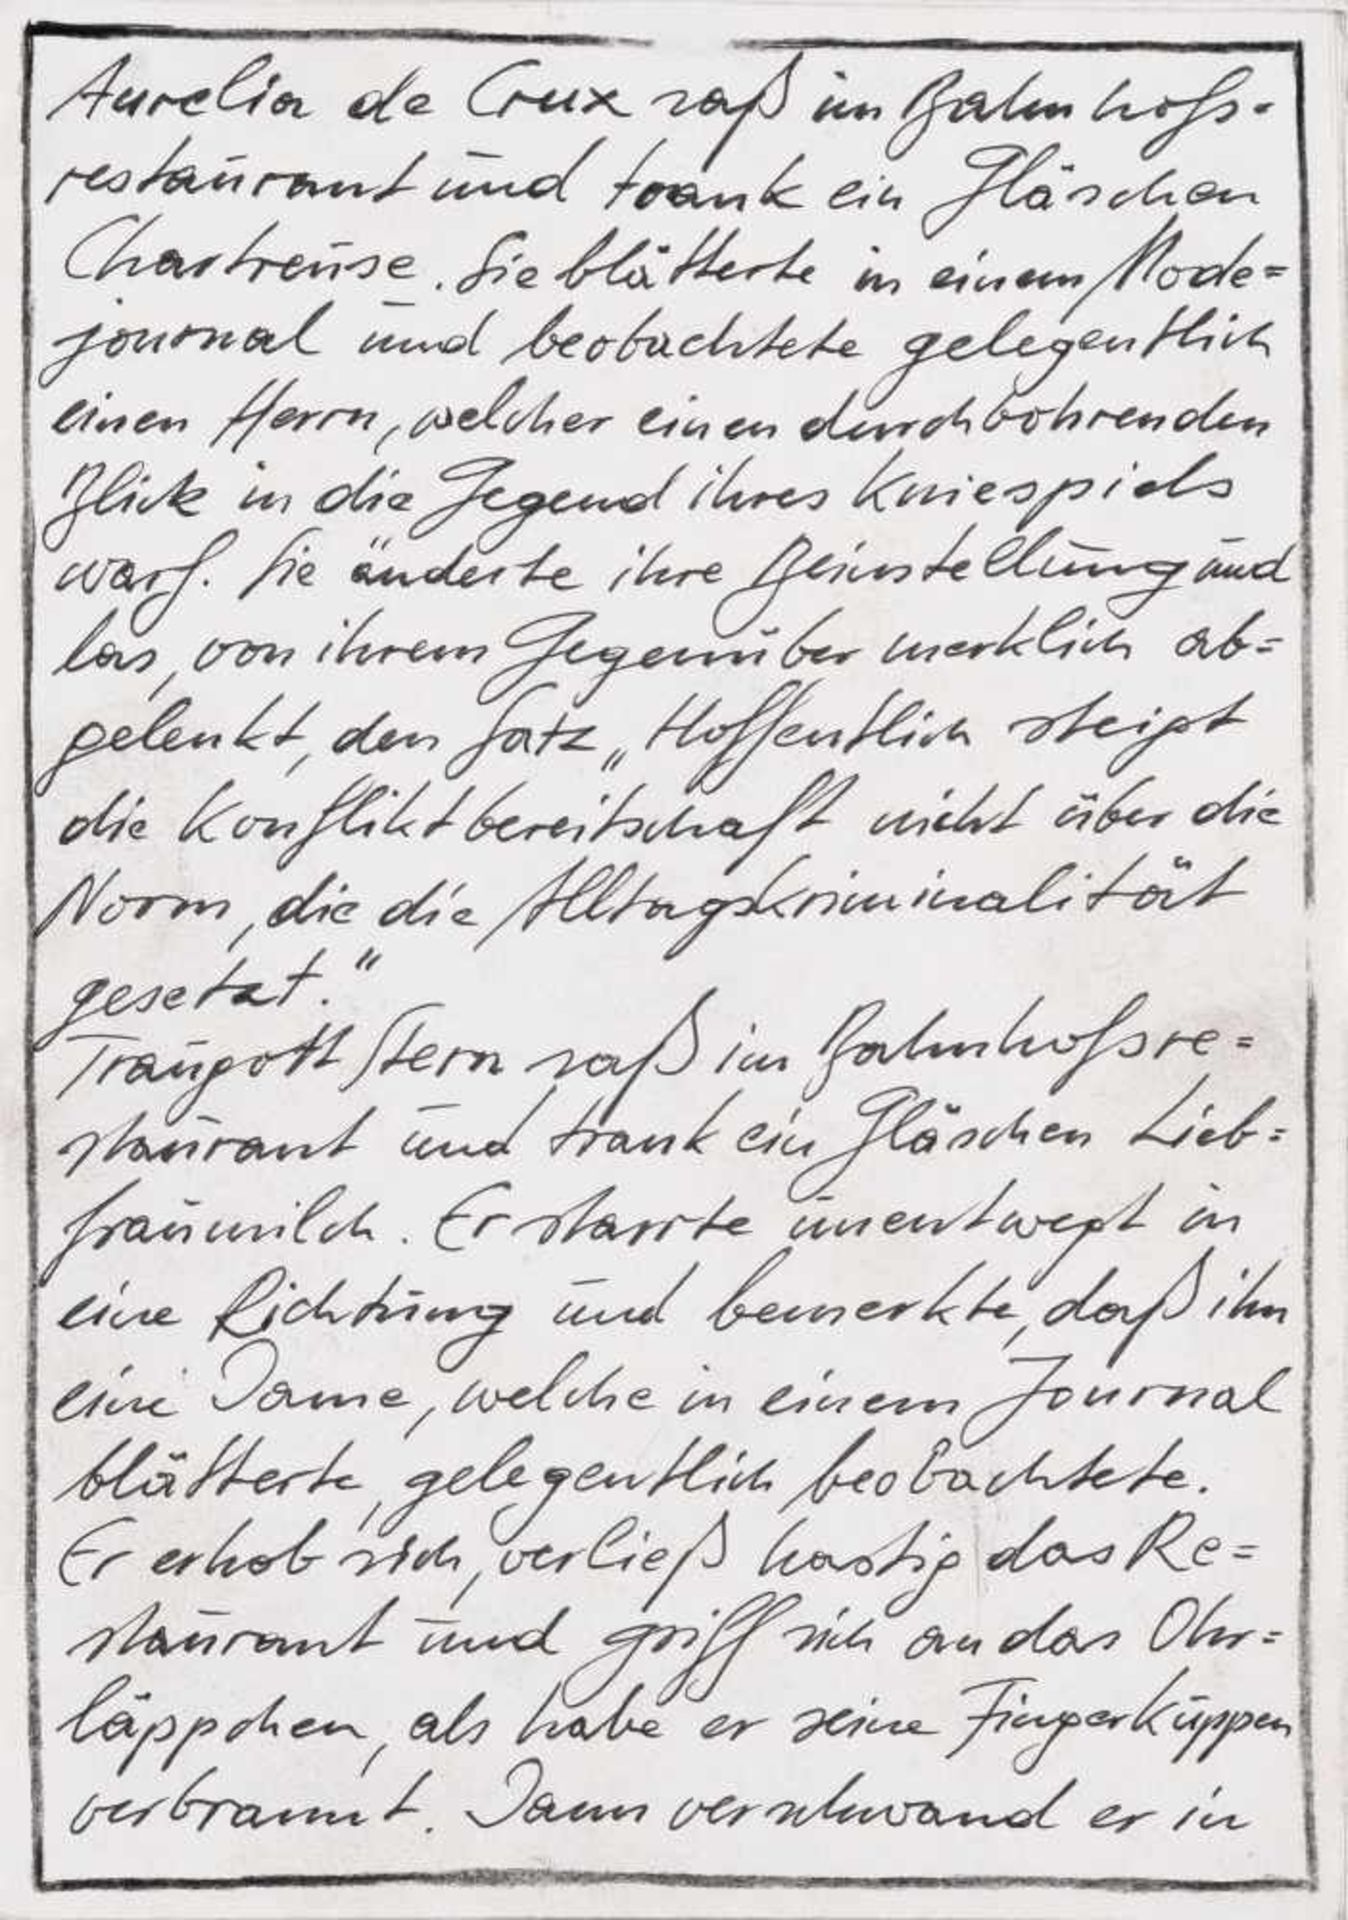 Aurelia de Crux saß im Bahnhofs=
restaurant und trank ein Gläschen
Chartreuse. Sie blätterte in einem Mode=
journal und beobachtete gelegentlich
einen Herrn, welcher einen durchbohrenden
Blick in die Gegend ihres Kniespiels
warf. Sie änderte ihre Beinstellung und
las, von ihrem Gegenüber merklich ab=
gelenkt, den Satz „Hoffentlich steigt
die Konfliktbereitschaft nicht über die
Norm, die die Alltagskriminalität
gesetzt.“
Traugott Stern saß im Bahnhofsre=
staurant und trank ein Gläschen Lieb=
fraumilch. Er starrte unentwegt in
eine Richtung und bemerkte, daß ihn
eine Dame, welche in einem Journal
blätterte, gelegentlich beobachtete.
Er erhob sich, verließ hastig das Re=
staurant und griff sich an das Ohr=
läppchen, als habe er seine Fingerkuppen
verbrannt. Dann verschwand er in